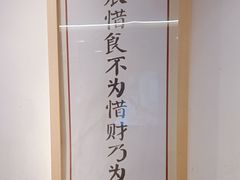 惜食不为惜财乃为